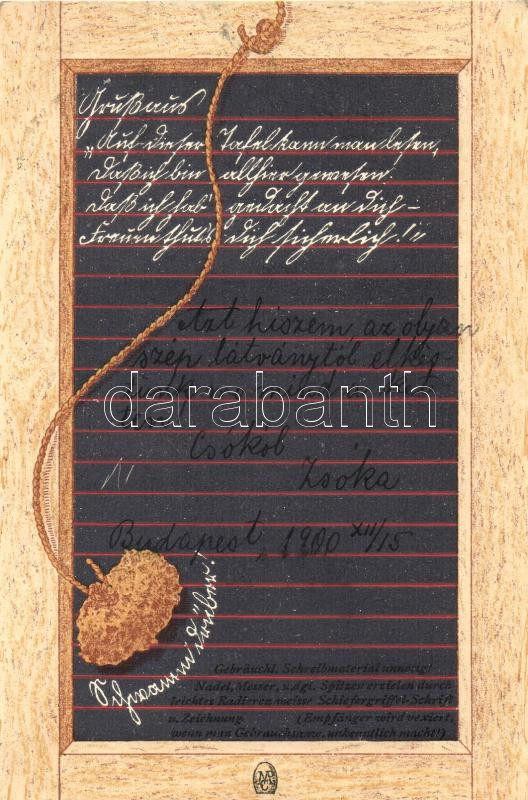 Gruß aus
„Auf dieser Tafel kann man lesen,
Daß ich bin allhier gewesen.
Daß ich hab' gedacht an Dich –
Freuen thut's Dich sicherlich!"
Azt hiszem az olyan
szép látványtól
darabanth
Csókol
Zsóka
Budapest, 1900 XII/15
Schwamm drüber!
Gebräuchl. Schreibmaterial unnötig!
Nadel, Messer, u. dgl. Spitzen erzielen durch
leichtes Radieren weisse Schiefergriffel-Schrift
u. Zeichnung. (Empfänger wird vexiert,
wenn man Gebrauchsanw. unkenntlich macht!)